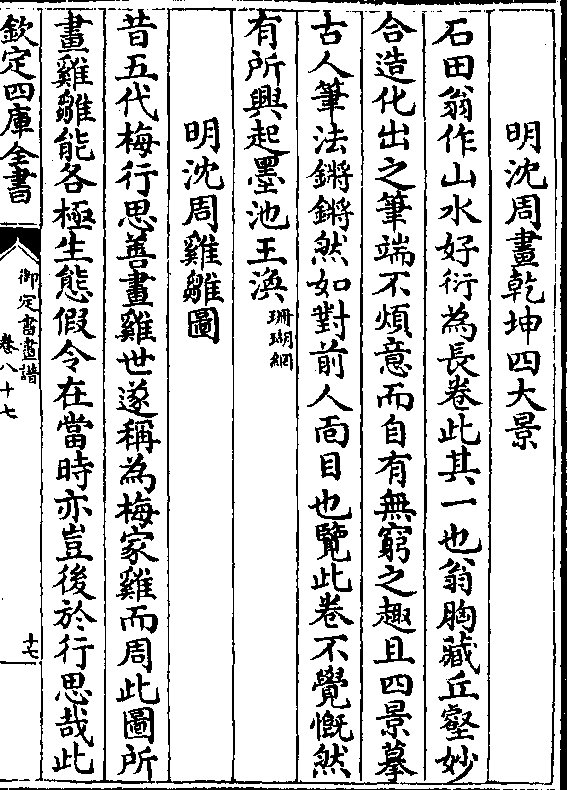 明沈周畫乾坤四大景
石田翁作山水好衍為長卷此其一也翁胸藏丘壑妙
合造化出之筆端不煩意而自有無窮之趣且四景摹
古人筆法鏘鏘然如對前人面目也覽此卷不覺慨然
有所興起墨池王渙珊瑚網
明沈周雞雛圖
昔五代梅行思善畫雞世遂稱為梅家雞而周此圖所
畫雞雛能各極生態假令在當時亦豈後於行思哉此
欽定四庫全書
御定書畫譜
卷八十七
十七